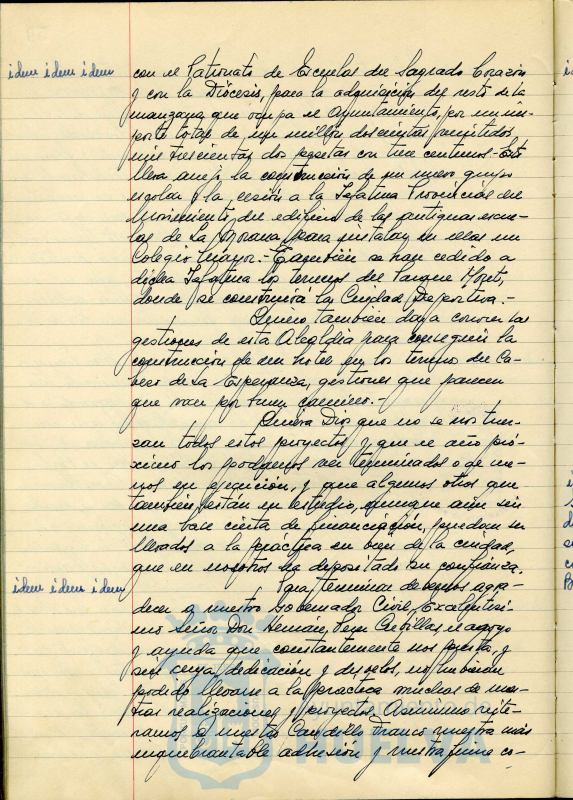 idem idem idem
con el Patronato de Escuelas del Sagrado Corazón
y con la Diócesis, para la adquisición del resto de la
manzana que ocupa el Ayuntamiento, por un im-
porte total de un millón doscientas
mil trescientas dos pesetas con trece centimos.- Esto
lleva anejo la construcción de un nuevo grupo
escolar y la cesión a la Jefatura Provincial del
Movimiento del edificio de las antiguas escue-
las de La Morana para instalar en ellas un
Colegio Mayor.- También se han cedido a
dicha Jefatura los terrenos del Parque Moret,
donde se construirá la Ciudad Deportiva.-
Quiero también dar a conocer las
gestiones de esta Alcaldia para conseguir la
construcción de un hotel en los terrenos del Ca-
bezo de La Esperanza, gestiones que parecen
que van por buen camino.-
Quiera Dios que no se nos tuer-
zan todos estos proyectos y que el año pró-
ximo los podamos ver terminados o al me-
nos en ejecución, y que algunos otros que
también están en estudio, aunque aún sin
una base cierta de financiación, puedan ser
llevados a la práctica en bien de la ciudad,
que en nosotros ha depositado su confianza.
idem idem idem
Para terminar debemos agra-
decer a nuestro Gobernador Civil, Excelentísi-
mo Señor Don Hernán Perez Cubillas, el apoyo
y ayuda que constantemente nos presta, y
sin cuya dedicación y desvelos, no hubieran
podido llevarse a la practica muchas de nues-
tras realizaciones y proyectos. Asimismo reite-
ramos a nuestro Caudillo Franco nuestra más
inquebrantable adhesión y nuestra firme co-
HUELVA